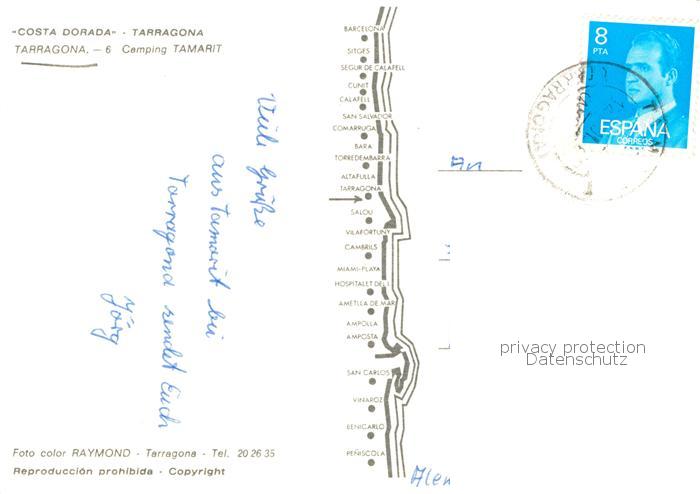 "COSTA DORADA" - TARRAGONA
TARRAGONA. - 6 Camping TAMARIT
Viele Grüße
aus Tamarit bei
Tarragona sendet Euch
Jörg
Foto color RAYMOND - Tarragona - Tel. 20 26 35
Reproducción prohibida - Copyright
BARCELONA
SITGES
SEGUR DE CALAFELL
CUNIT
CALAFELL
SAN SALVADOR
COMARRUGA
BARA
TORREDEMBARRA
ALTAFULLA
TARRAGONA
SALOU
VILAFORTUNY
CAMBRILS
MIAMI-PLAYA
HOSPITALET DEL I.
AMETLLA DE MAR
AMPOLLA
AMPOSTA
SAN CARLOS
VINAROZ
BENICARLO
PEÑISCOLA
8
PTA
ESPAÑA
CORREOS
TARRAGONA
An
privacy protection
Datenschutz